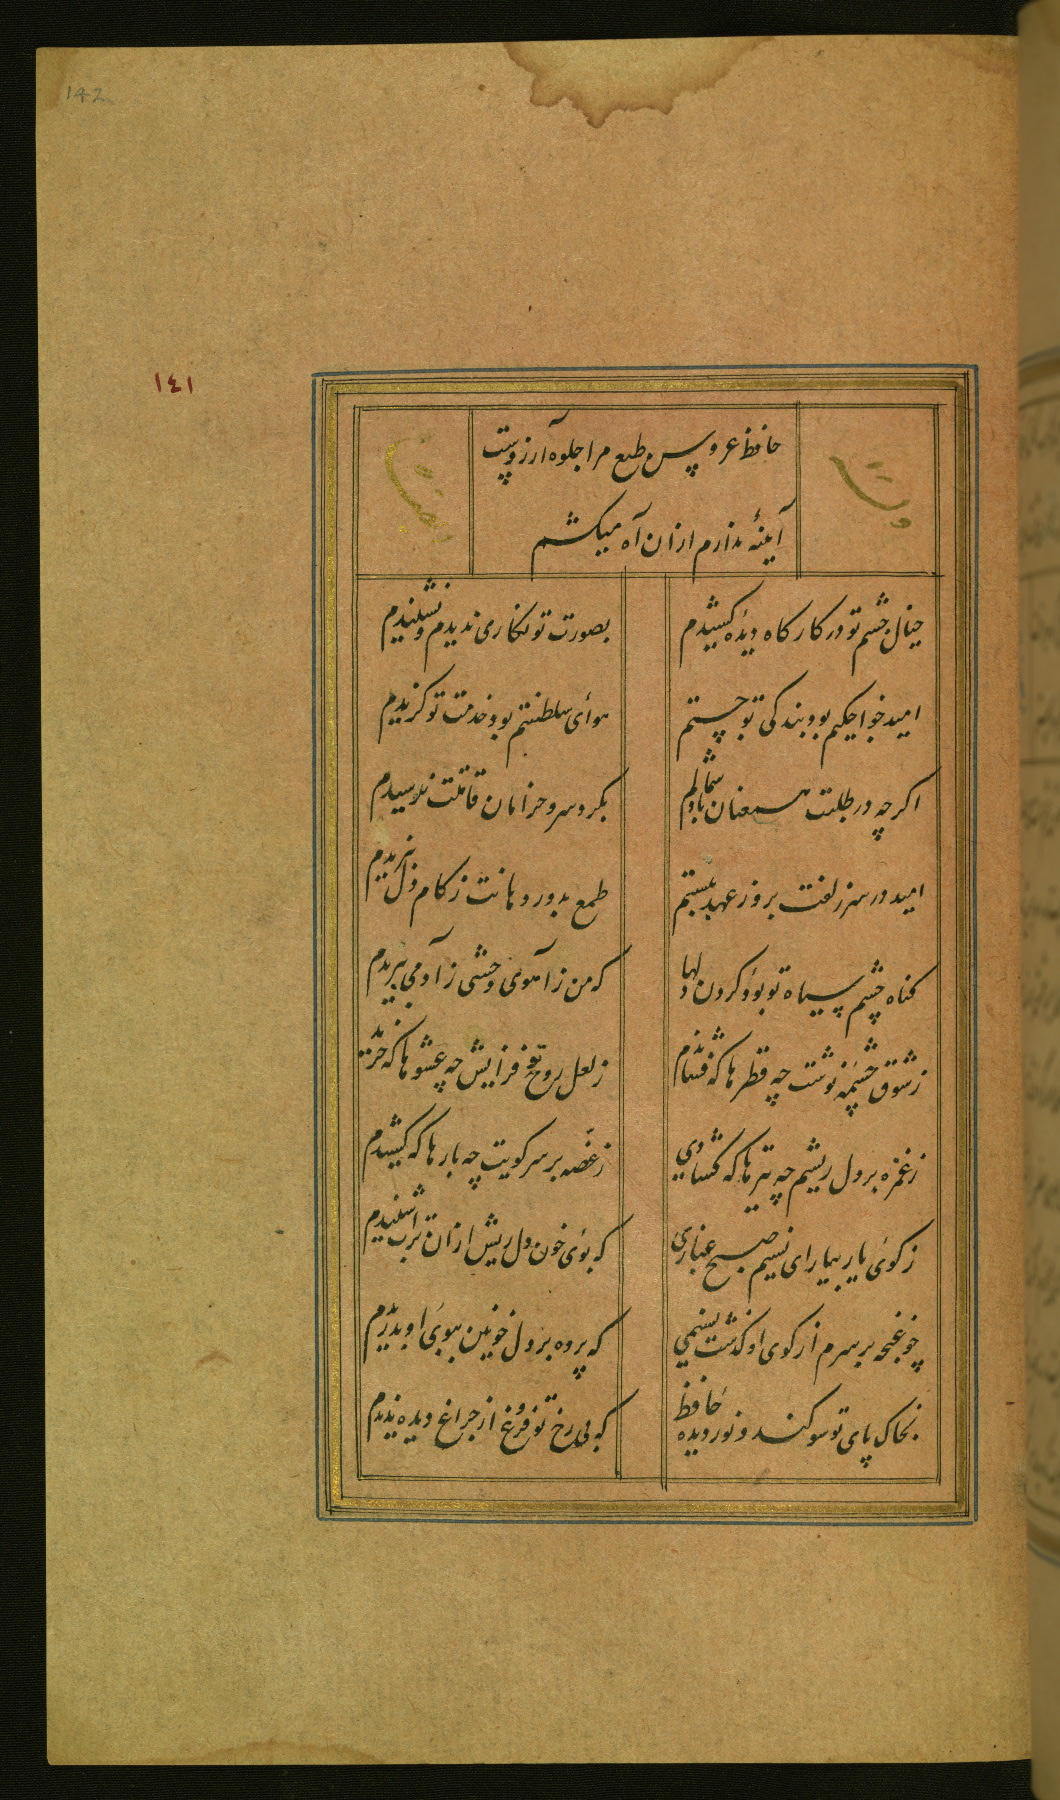 142
١٤١
حافظ عروس طبع مرا جلوه آرزوست
آینهٔ ندارم ازان آه میکشم
خیال چشم تو در کارکاه دیده کشیدم
بصورت تو نکاری ندیدم و نشنیدم
امید خواجکیم بود بندکی تو جستم
هوای سلطنتم بود خدمت تو کزیدم
اکرچه در طلبت همعنان باد شمالم
بکرد سرو خرامان قامتت نرسیدم
امید در سر زلفت بروز عهد ببستم
طمع بدور دهانت زکام دل ببریدم
کناه چشم سیاه تو بود و کردن دلها
که من ز آهوی وحشی ز آدمی برمیدم
ز شوق چشمه نوشت چه قطرها که فشاندم
ز لعل روح فزایش چه عشوها که خریدم
ز غمزه بر دل ریشم چه تیرها که کشادی
ز غصه بر سر کویت چه بارها که کشیدم
ز کوی یار بیار ای نسیم صبح غباری
که بوی خون دل ریش ازان تراب شنیدم
چو غنچه بر سرم از کوی او کذشت نسیمی
که پرده بر دل خونین ببوی او بدریدم
بخاک پای تو سوکند و نور دیده حافظ
که بی رخ تو فروغ از چراغ دیده ندیدم